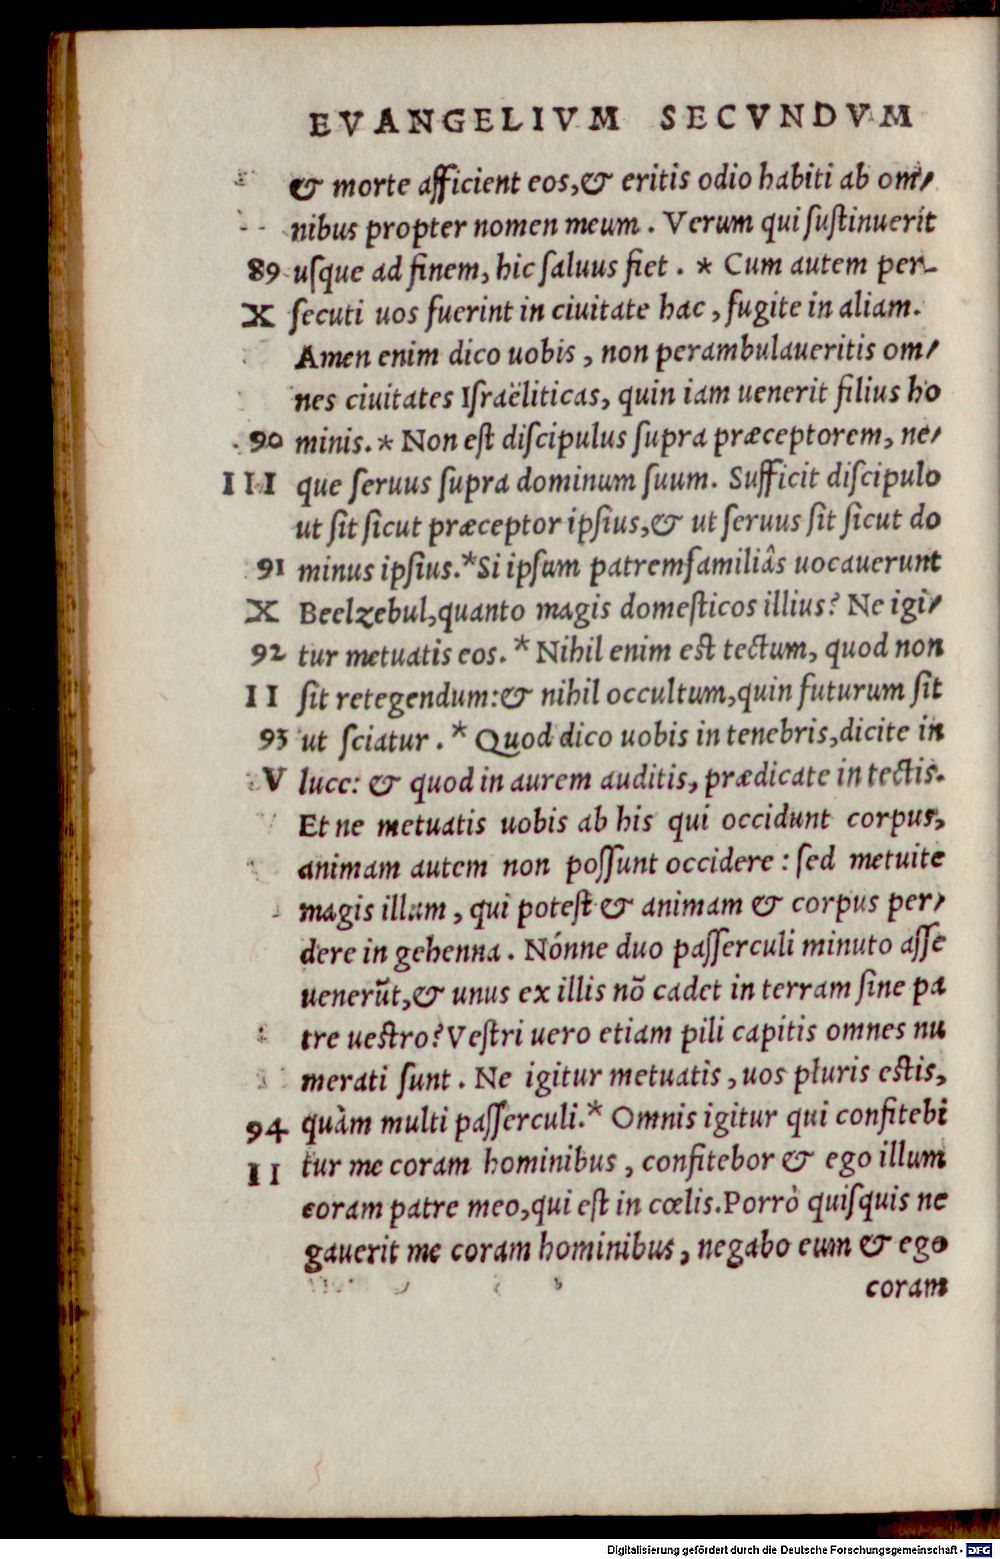 EVANGELIVM SECVNDVM
& morte afficient eos,& eritis odio habiti ab om/
nibus propter nomen meum . Verum qui sustinuerit
89 usque ad finem, hic saluus fiet . * Cum autem per-
X secuti uos fuerint in ciuitate hac , fugite in aliam.
Amen enim dico uobis , non perambulaueritis om/
nes ciuitates Israëliticas, quin iam uenerit filius ho
90 minis. * Non est discipulus supra præceptorem, ne/
III que seruus supra dominum suum. Sufficit discipulo
ut sit sicut præceptor ipsius,& ut seruus sit sicut do
91 minus ipsius.*Si ipsum patremfamiliâs uocauerunt
X Beelzebul,quanto magis domesticos illius? Ne igi/
92 tur metuatis eos. * Nihil enim est tectum, quod non
II sit retegendum:& nihil occultum,quin futurum sit
93 ut sciatur . * Quod dico uobis in tenebris,dicite in
V luce: & quod in aurem auditis, prædicate in tectis.
Et ne metuatis uobis ab his qui occidunt corpus,
animam autem non possunt occidere : sed metuite
magis illum , qui potest & animam & corpus per/
dere in gehenna . Nónne duo passerculi minuto asse
uenerũt,& unus ex illis nõ cadet in terram sine pa
tre uestro? Vestri uero etiam pili capitis omnes nu
merati sunt . Ne igitur metuatis , uos pluris estis,
94 quàm multi passerculi.* Omnis igitur qui confitebi
II tur me coram hominibus , confitebor & ego illum
coram patre meo,qui est in cœlis.Porrò quisquis ne
gauerit me coram hominibus , negabo eum & ego
coram
Digitalisierung gefördert durch die Deutsche Forschungsgemeinschaft - DFG